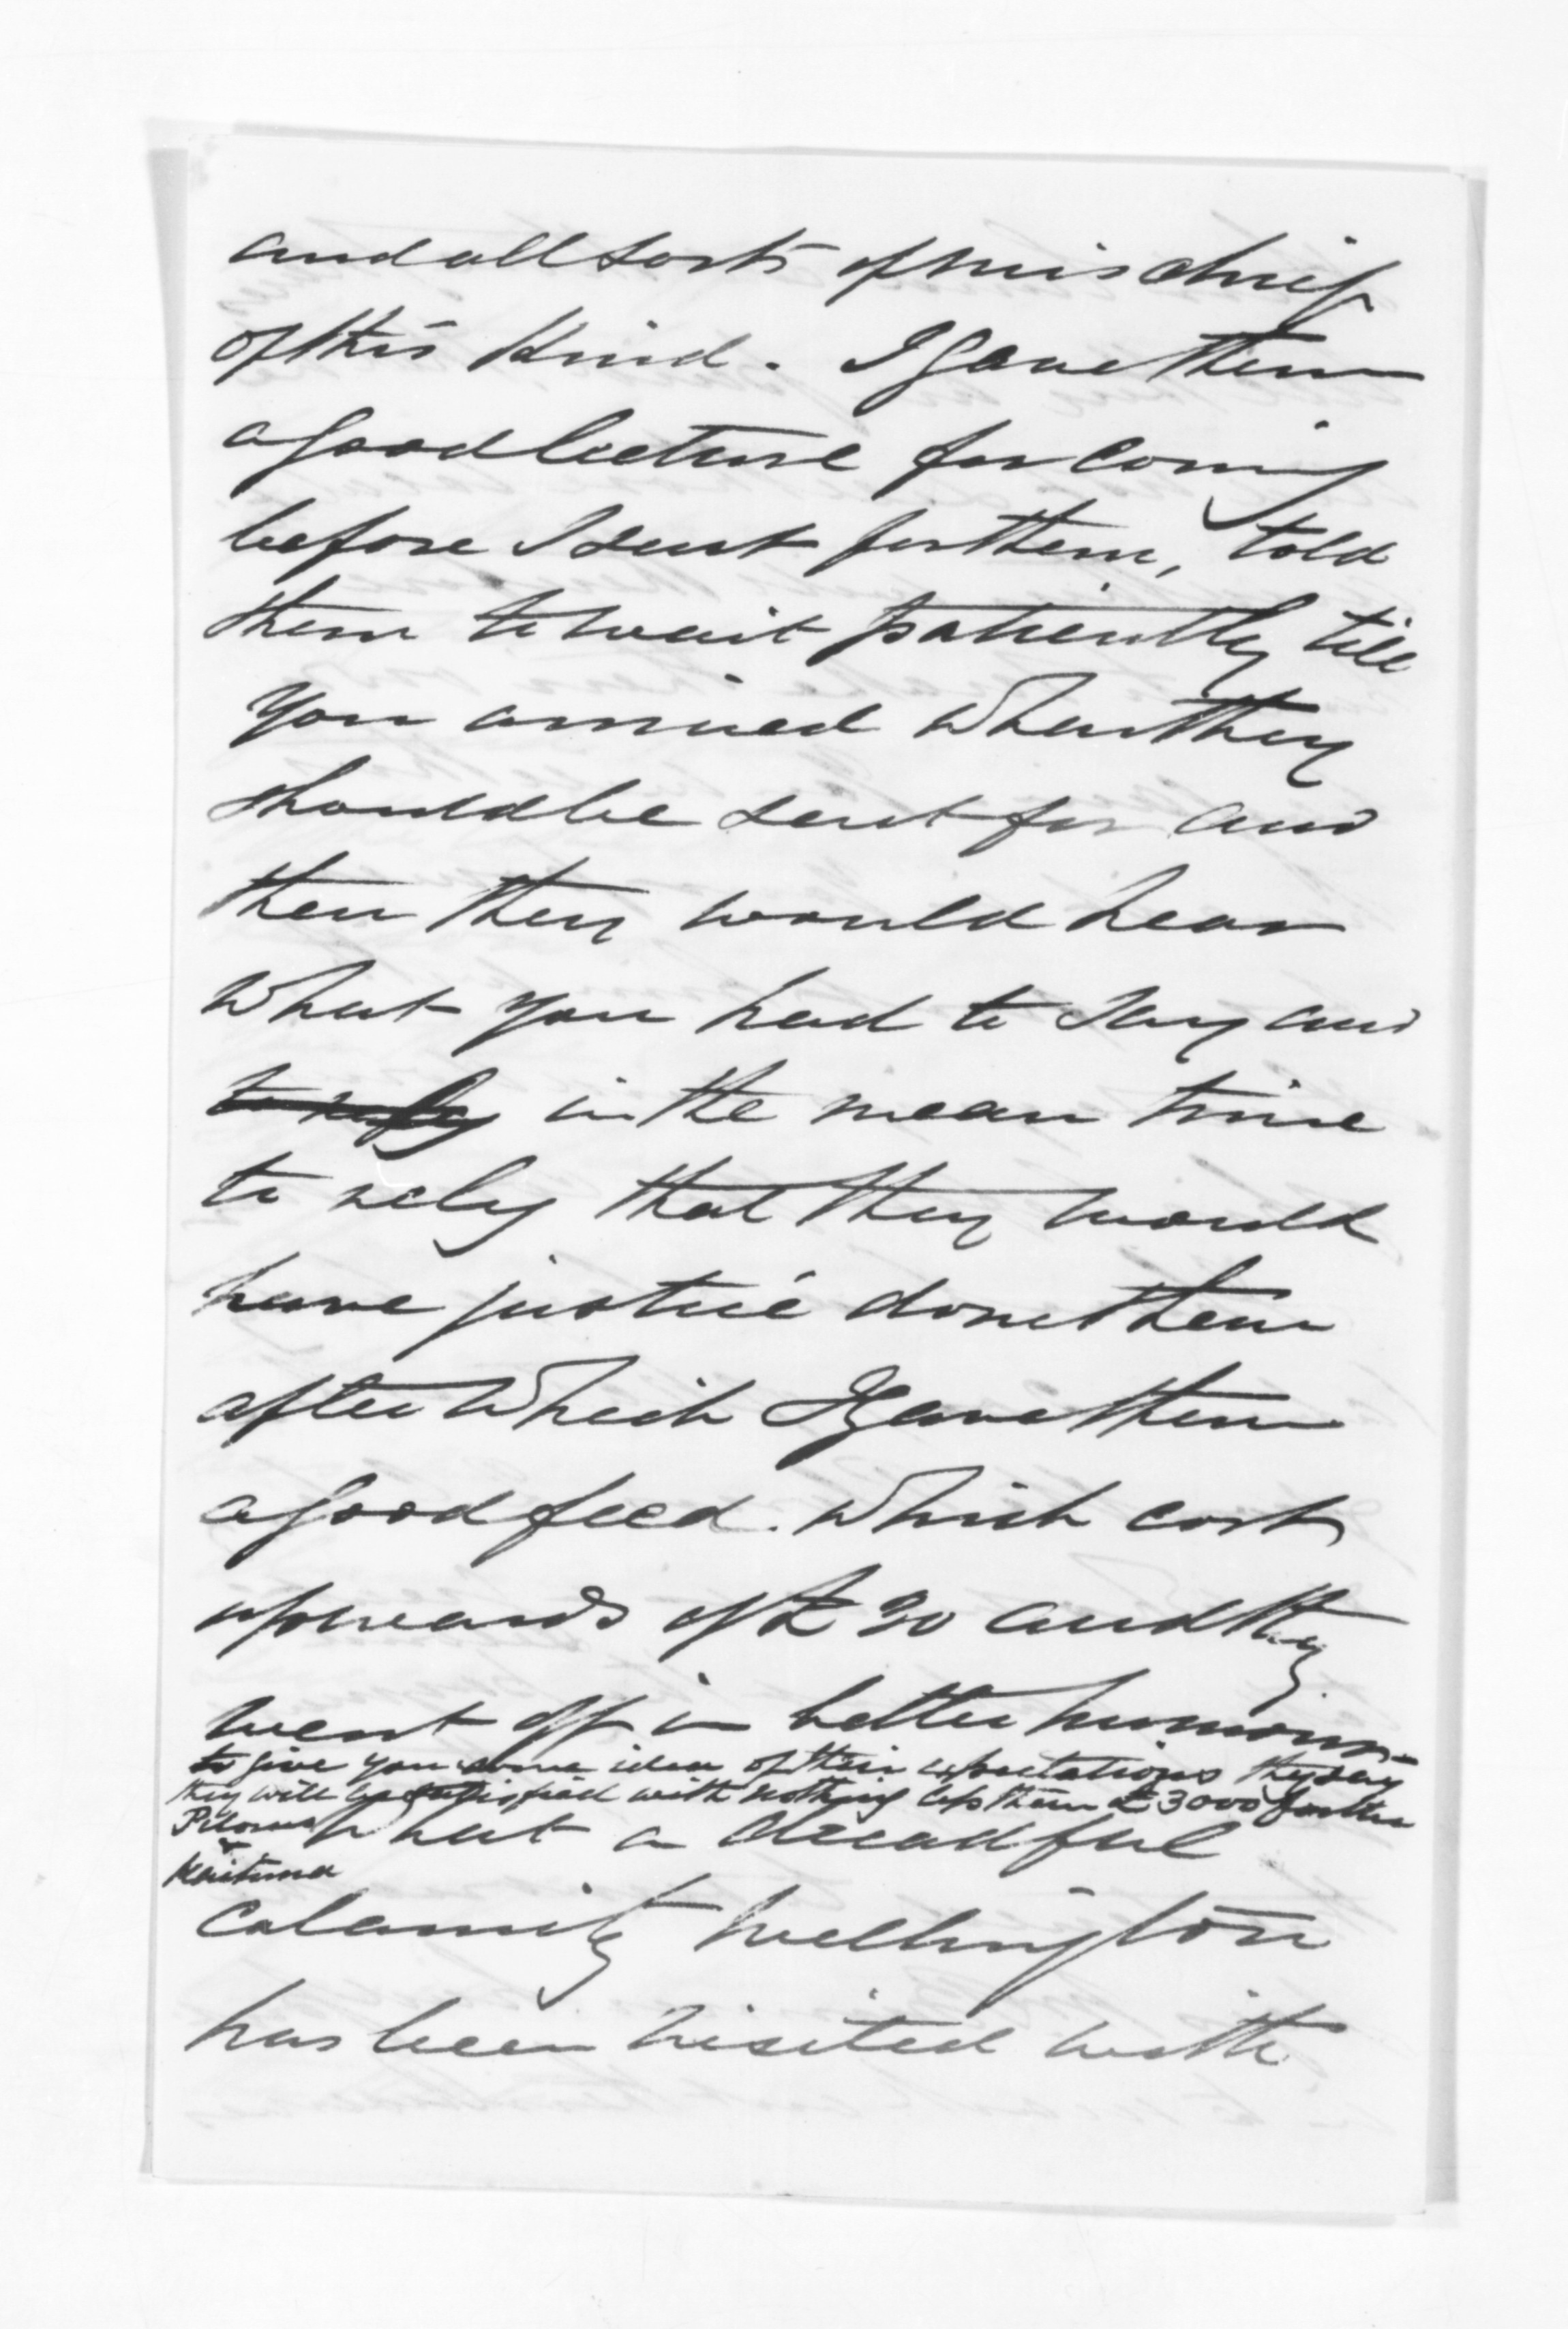 and all sorts of mischief
of this kind. I gave them
a good lecture for coming
before I sent for them, told
them to wait patiently till
you arrived when they
should be sent for and
then they would hear
what you had to say and
in the mean time
to rely that they would
have justice done them
after which I gave them
a good feed. which cost
upwards of £30 and they
went off in better humour -
to give you some idea of their expectations they say
they will be satisfied with nothing less than £3000 for the
Pelorus
&
Kaituna
What a dreadful
calamity Wellington
has been visited with